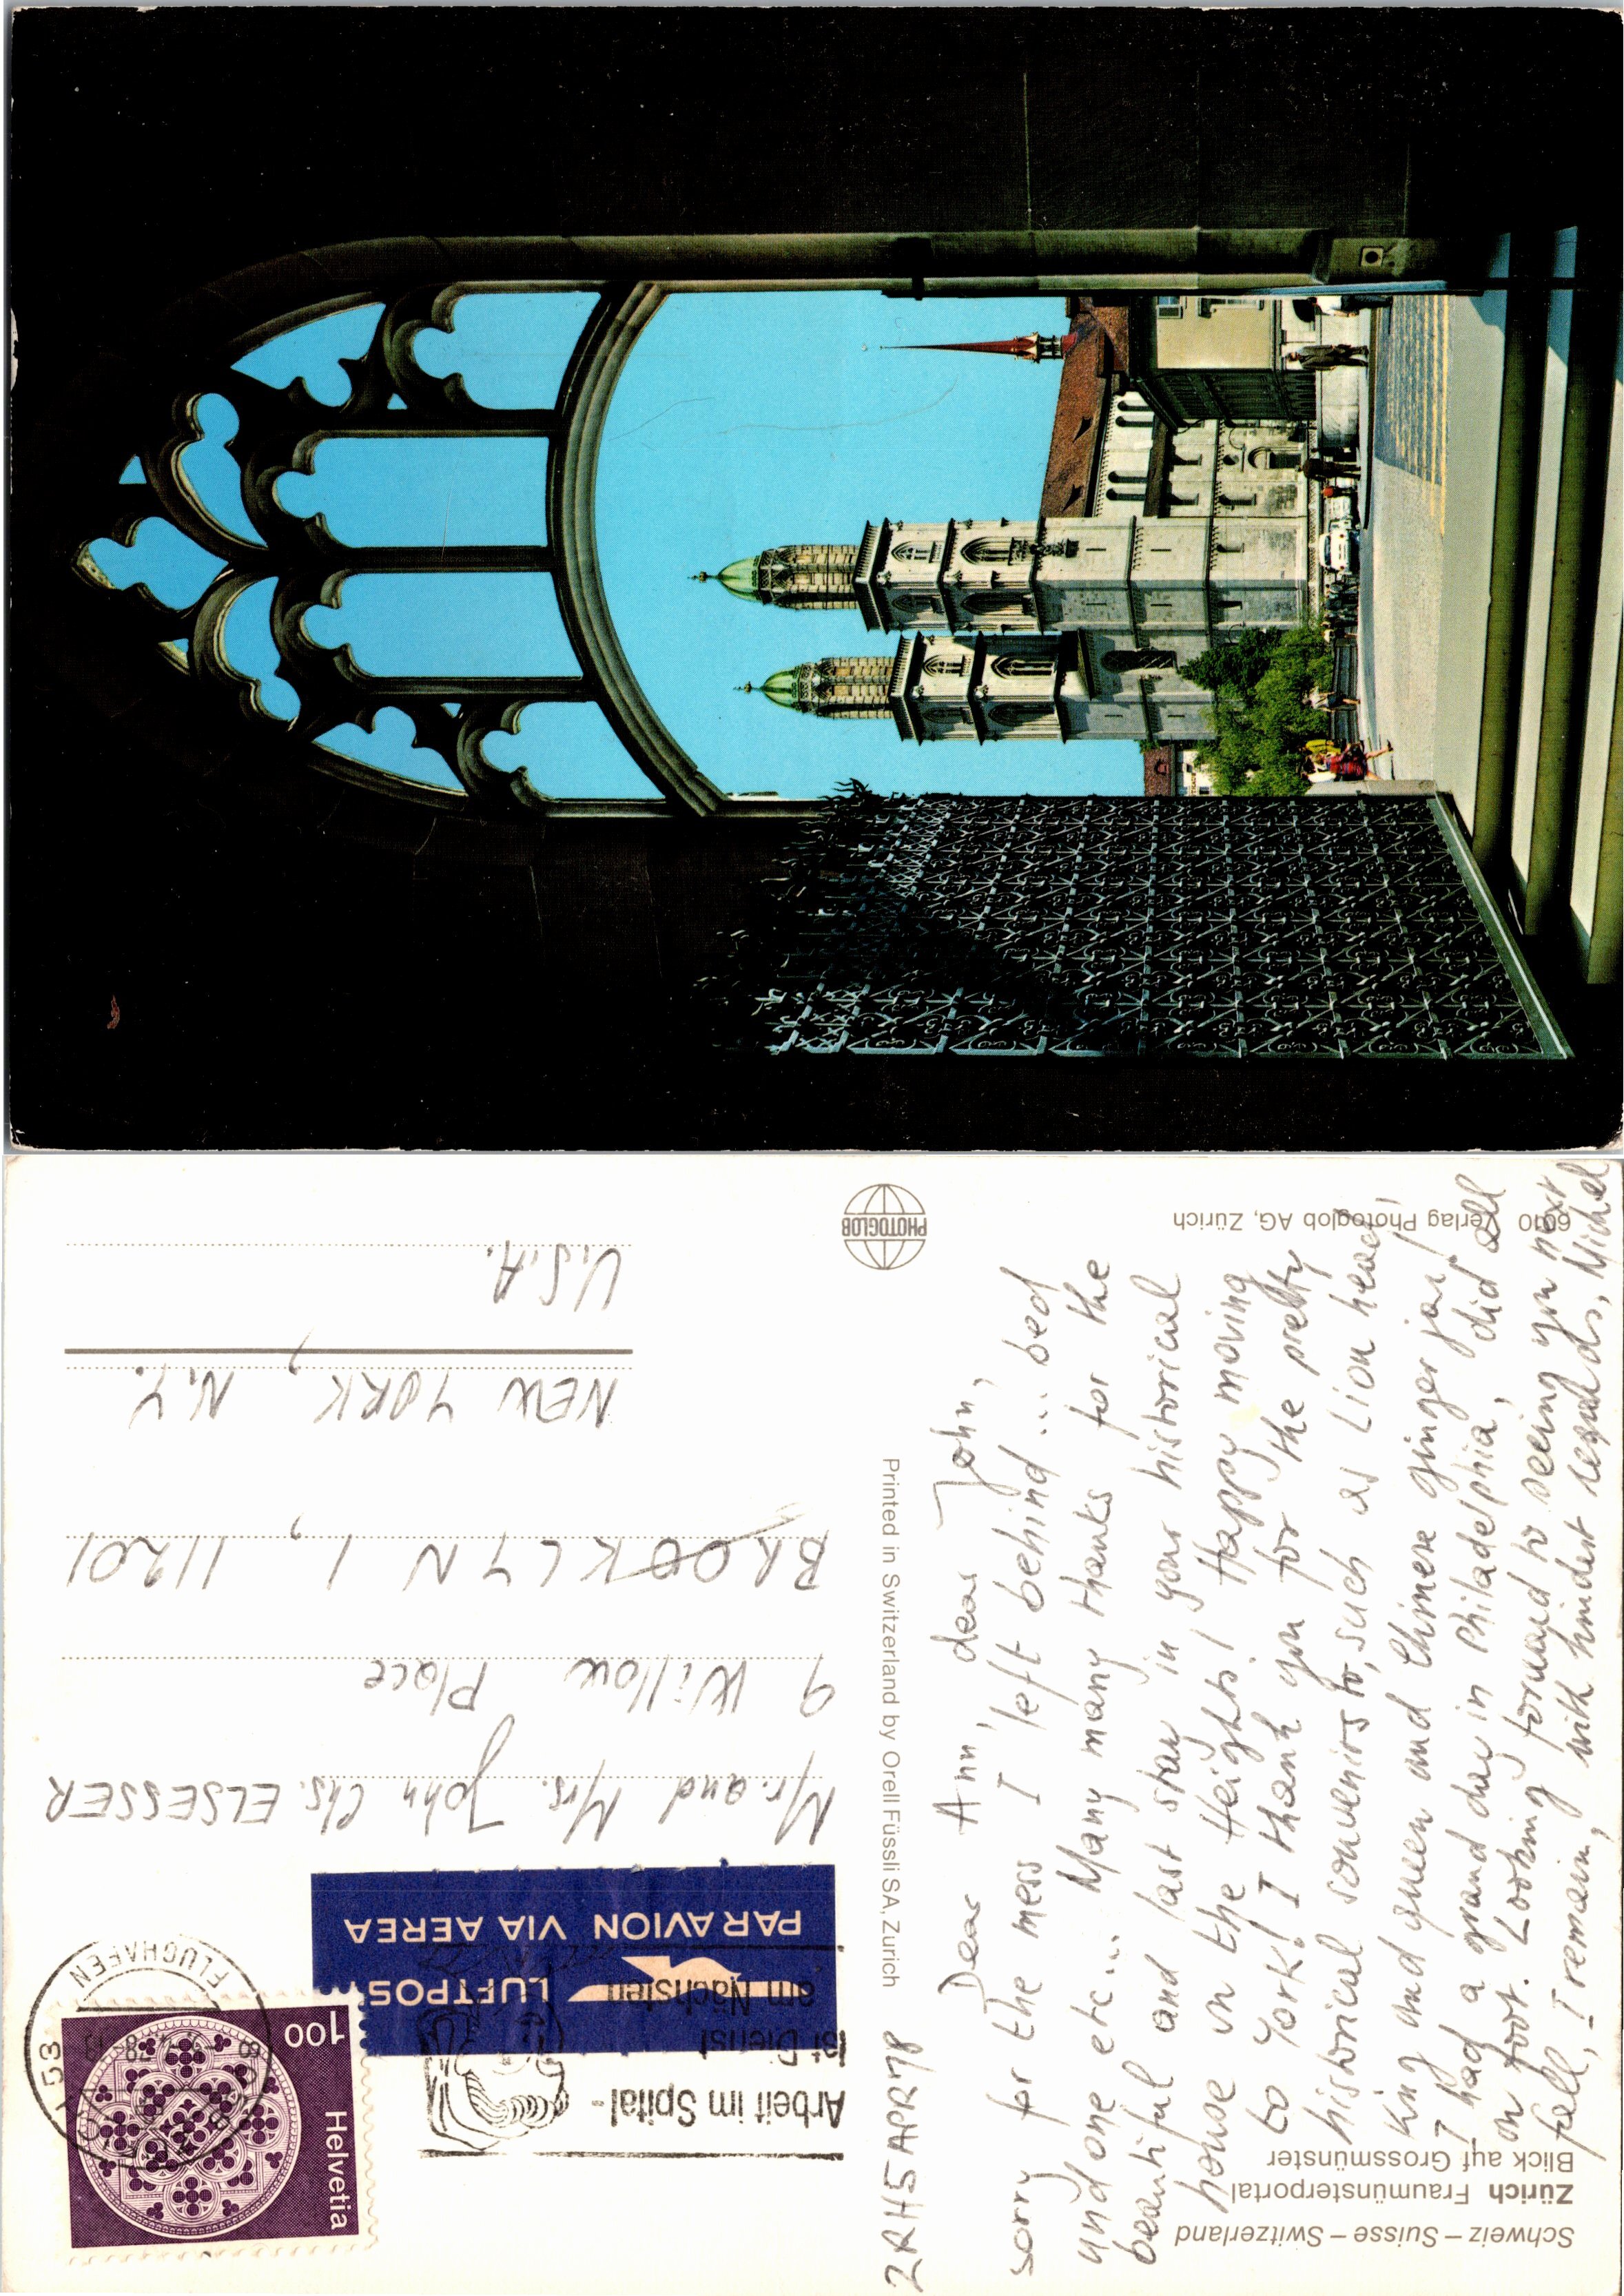 Schweiz – Suisse – Switzerland
Zürich Fraumünsterportal
Blick auf Grossmünster
6010 Verlag Photoglob AG, Zürich
PHOTOGLOB
Printed in Switzerland by Orell Füssli SA, Zurich
ZRH 5 APR 78
Dear Ann, dear John,
sorry for the mess I left behind ... bed
undone etc... Many many thanks for the
beautiful and last stay in your historical
house in the Heights! Happy moving
to York! I thank you for the pretty
historical souvenirs to, such as Lion head,
King and queen and Chinese ginger jar!
I had a grand day in Philadelphia, did all
on foot. Looking forward to seeing you next
fall, I remain, with kindest regards, Michel
Arbeit im Spital -
ist Dienst
am Nächsten
FLUGHAFEN
8058
Helvetia
100
LUFTPOST
PAR AVION VIA AEREA
Mr. and Mrs. John Chs. ELSESSER
9 Willow Place
BROOKLYN 1, 11201
NEW YORK, N.Y.
U.S.A.